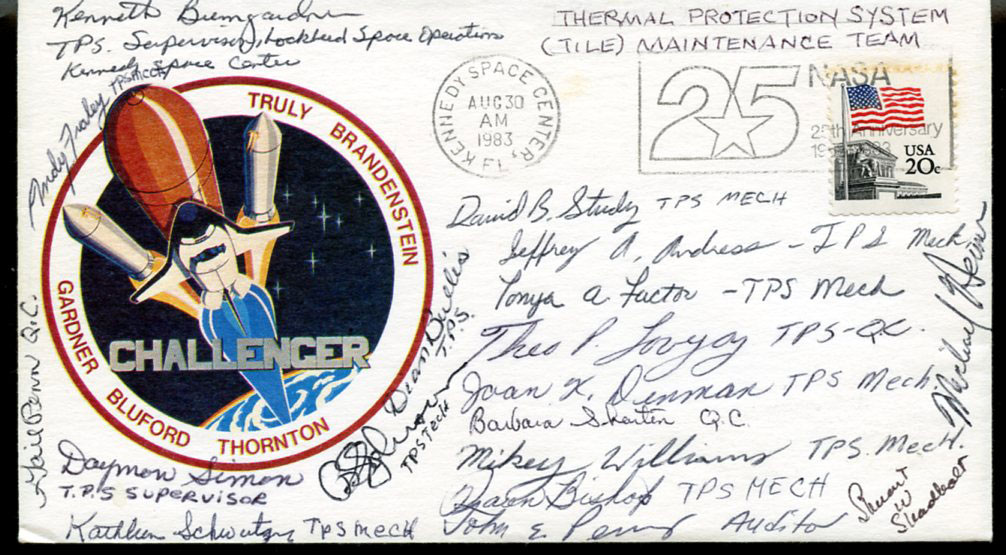 Kenneth Bumgardner
TPS. Supervisor, Lockheed Space Operations
Kennedy Space Center
THERMAL PROTECTION SYSTEM
(TILE) MAINTENANCE TEAM
KENNEDY SPACE CENTER, FL
AUG 30
AM
1983
25
NASA
25th Anniversary
USA
20c
Andy Fraley TPS MECH
TRULY BRANDENSTEIN
GARDNER BLUFORD THORNTON
CHALLENGER
Gail Penn Q.C.
Dean
T.P.S.
TPS Tech
Daymon Simon
T.P.S SUPERVISOR
Kathleen TPS MECH
David B. Study TPS MECH
Jeffrey A. Andress - TPS Mech.
Tonya A Factor - TPS Mech
Theo P. Lovejoy TPS-QC.
Joan K. Denman TPS Mech
Barbara Q.C.
Mikey Williams TPS. Mech.
Bishop TPS MECH
John E Auditor
Michael
Stuart
W